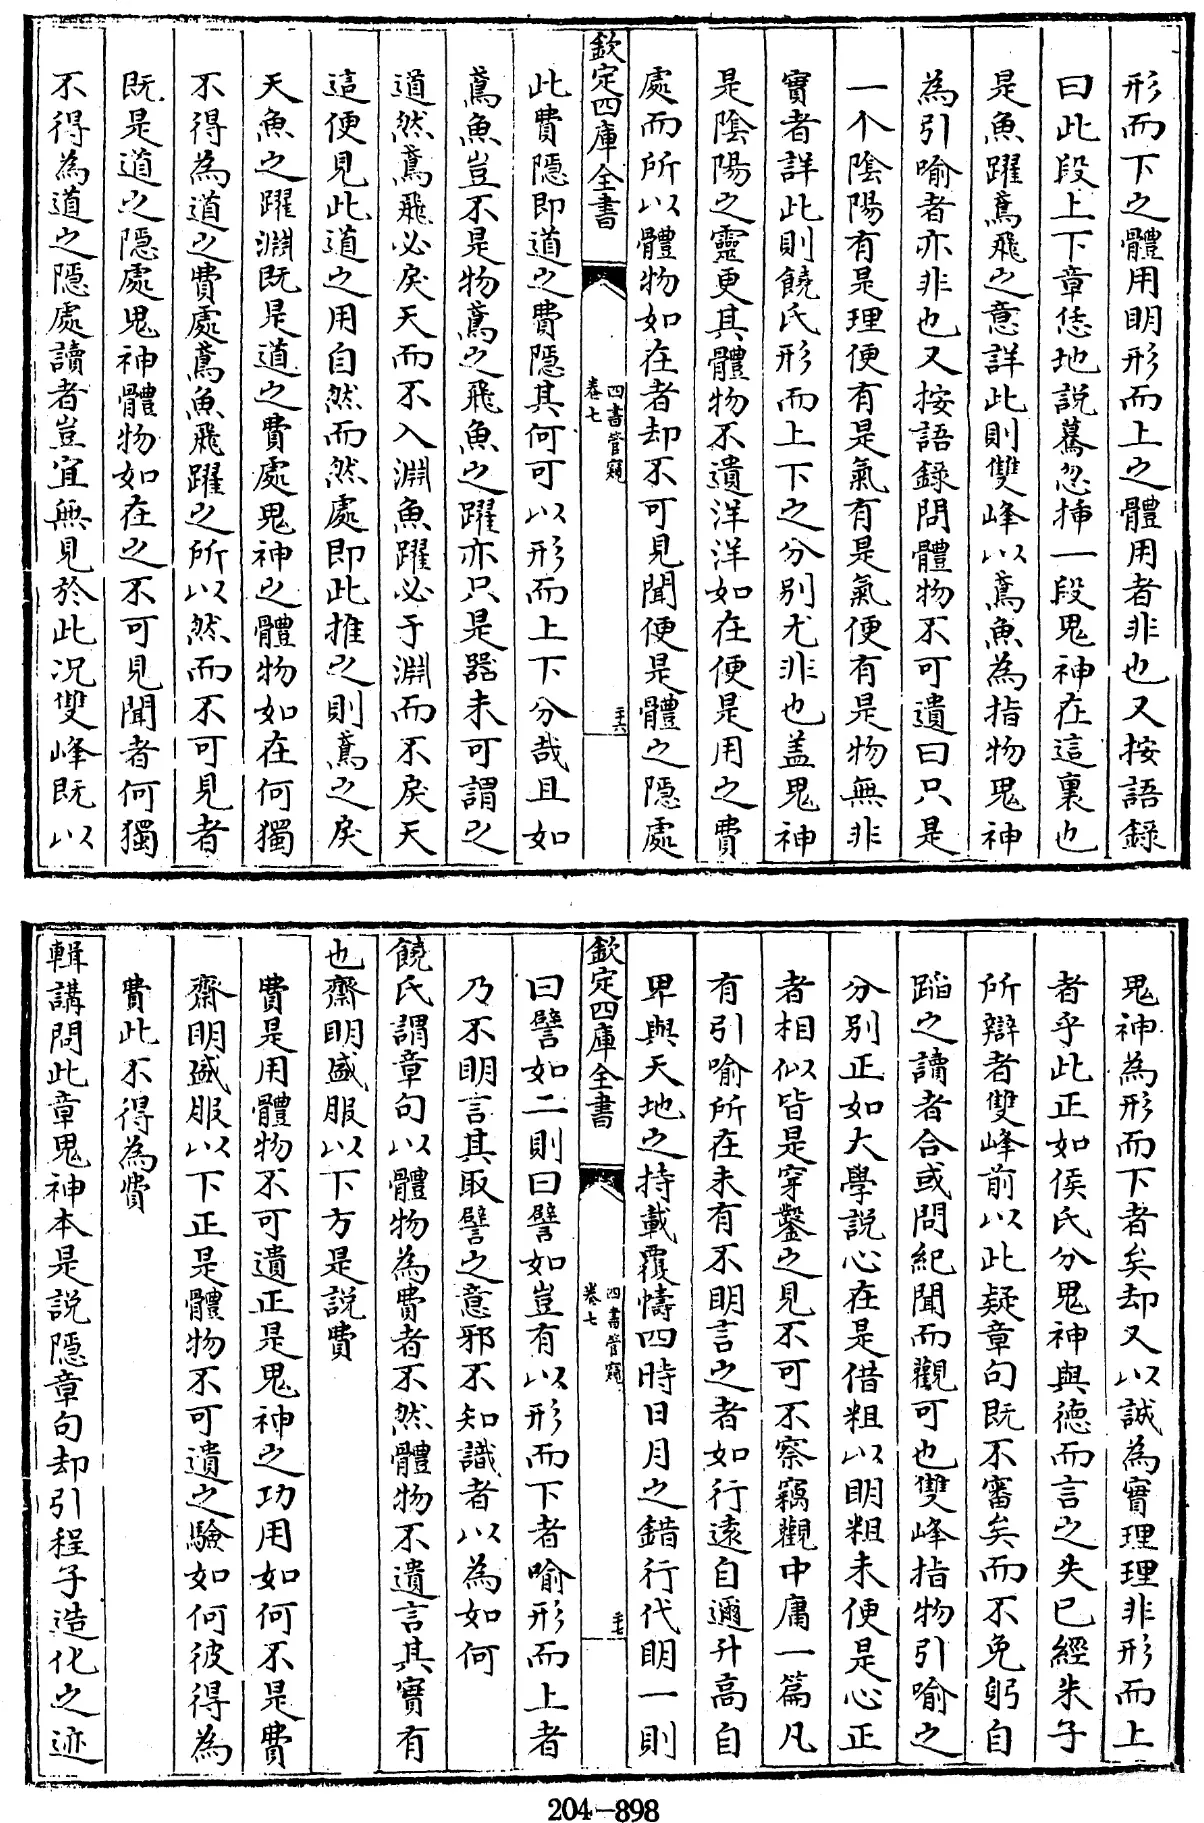 形而下之體用明形而上之體用者非也又按語錄
曰此段上下章恁地説驀忽揷一段鬼神在這裏也
是魚躍鳶飛之意詳此則雙峰以鳶魚為指物鬼神
為引喻者亦非也又按語錄問體物不可遺曰只是
一个陰陽有是理便有是氣有是氣便有是物無非
實者詳此則饒氏形而上下之分别尤非也盖鬼神
是陰陽之靈更其體物不遺洋洋如在便是用之費
處而所以體物如在者却不可見聞便是體之隠處
欽定四庫全書
四書管窺
卷七
三六
此費隠即道之費隠其何可以形而上下分哉且如
鳶魚豈不是物鳶之飛魚之躍亦只是器未可謂之
道然鳶飛必戾天而不入淵魚躍必于淵而不戾天
這便見此道之用自然而然處即此推之則鳶之戾
天魚之躍淵既是道之費處鬼神之體物如在何獨
不得為道之費處鳶魚飛躍之所以然而不可見者
既是道之隠處鬼神體物如在之不可見聞者何獨
不得為道之隠處讀者豈宜無見於此况雙峰既以
鬼神為形而下者矣却又以誠為實理理非形而上
者乎此正如侯氏分鬼神與徳而言之失已經朱子
所辯者雙峰前以此疑章句既不審矣而不免躬自
蹈之讀者合或問紀聞而觀可也雙峰指物引喻之
分别正如大學説心在是借粗以明粗未便是心正
者相似皆是穿鑿之見不可不察竊觀中庸一篇凡
有引喻所在未有不明言之者如行遠自邇升高自
卑與天地之持載覆幬四時日月之錯行代明一則
欽定四庫全書
四書管窺
卷七
三七
曰譬如二則曰譬如豈有以形而下者喻形而上者
乃不明言其取譬之意邪不知識者以為如何
饒氏謂章句以體物為費者不然體物不遺言其實有
也齋明盛服以下方是説費
費是用體物不可遺正是鬼神之功用如何不是費
齋明盛服以下正是體物不可遺之驗如何彼得為
費此不得為費
輯講問此章鬼神本是説隠章句却引程子造化之迹
204-898